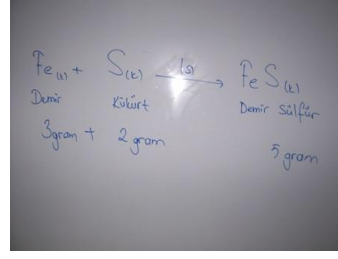 Fe(k) + S(k) ısı → FeS(k)
Demir Kükürt Demir Sülfür
3gram + 2 gram 5 gram